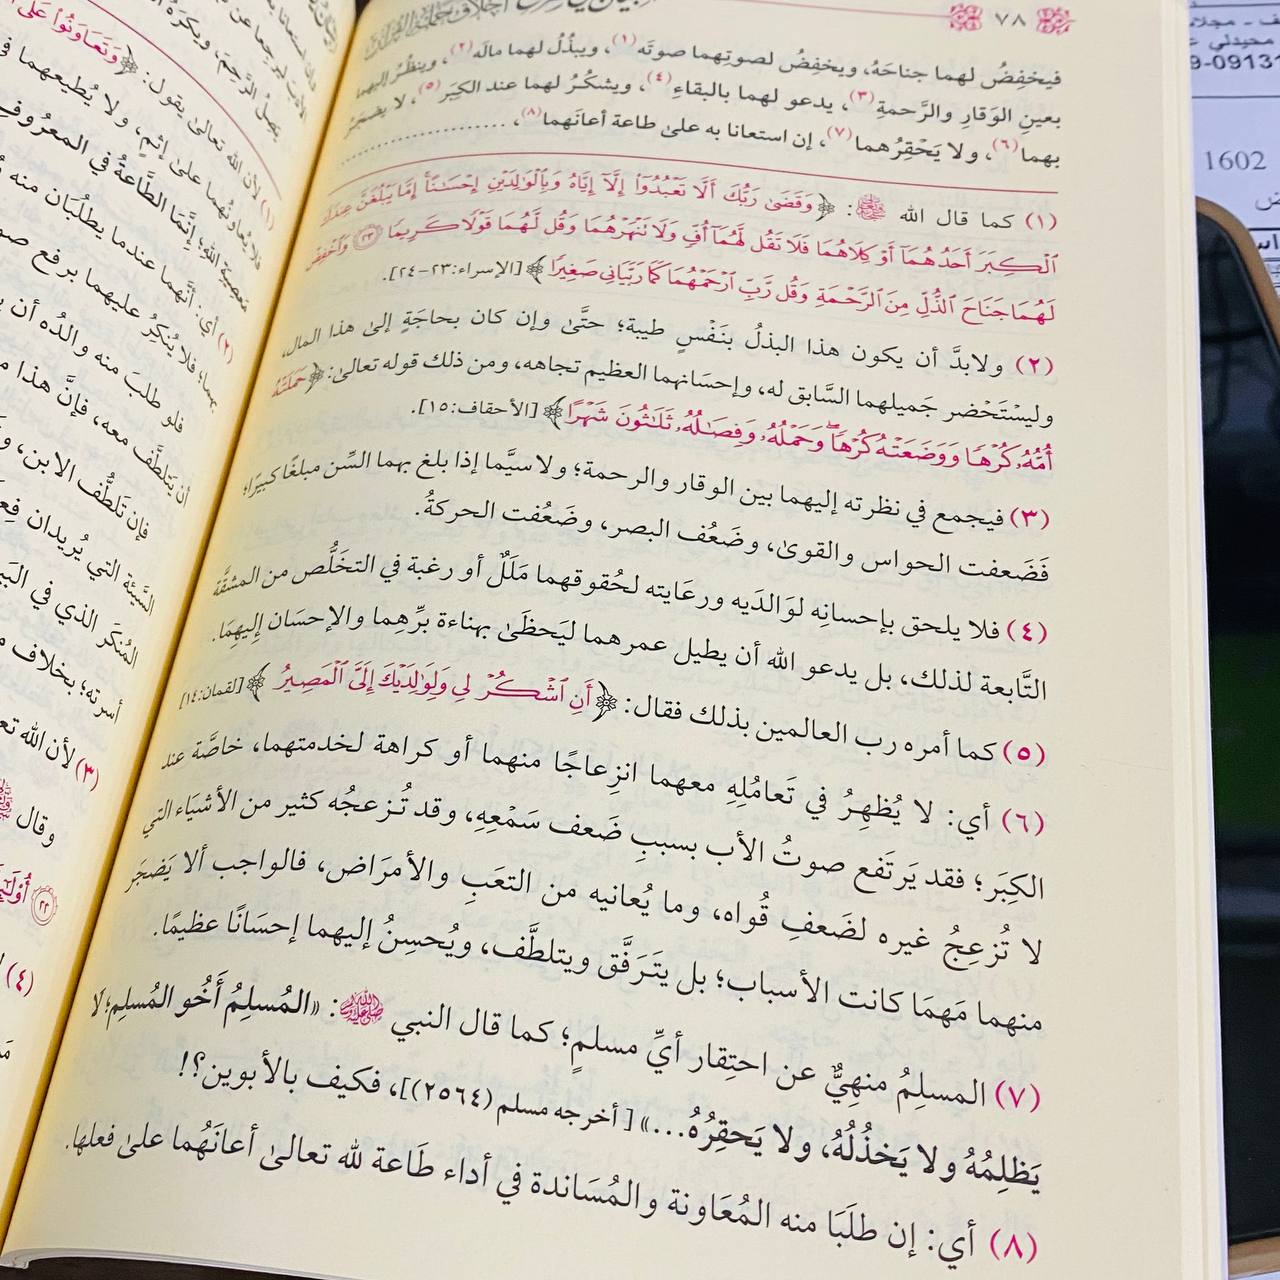 ٧٨
فيخفِضُ لهما جناحَهُ، ويخفِضُ لصوتِهما صوتَه(١)، ويبذُلُ لهما مالَه(٢)، وينظُرُ إليهما
بعينِ الوَقارِ والرَّحمةِ(٣)، يدعو لهما بالبقاءِ(٤)، ويشكُرُ لهما عند الكِبَرِ(٥)، لا يضجَرُ
بهما(٦)، ولا يَحْقِرُهما(٧)، إن استعانا به علىٰ طاعة أعانَهما(٨)، ....................
(١) كما قال الله ﷻ: ﴿وَقَضَىٰ رَبُّكَ أَلَّا تَعْبُدُوٓا۟ إِلَّآ إِيَّاهُ وَبِٱلْوَٰلِدَيْنِ إِحْسَٰنًا ۚ إِمَّا يَبْلُغَنَّ عِندَكَ
ٱلْكِبَرَ أَحَدُهُمَآ أَوْ كِلَاهُمَا فَلَا تَقُل لَّهُمَآ أُفٍّ وَلَا تَنْهَرْهُمَا وَقُل لَّهُمَا قَوْلًا كَرِيمًا ۝٢٣ وَٱخْفِضْ
لَهُمَا جَنَاحَ ٱلذُّلِّ مِنَ ٱلرَّحْمَةِ وَقُل رَّبِّ ٱرْحَمْهُمَا كَمَا رَبَّيَانِى صَغِيرًا﴾ [الإسراء:٢٣-٢٤].
(٢) ولابدَّ أن يكون هذا البذلُ بنَفْسٍ طيبة؛ حتَّىٰ وإن كان بحاجَةٍ إلىٰ هذا المال،
وليسْتَحْضر جَميلهما السَّابق له، وإحسَانهما العظيم تجاهه، ومن ذلك قوله تعالىٰ: ﴿حَمَلَتْهُ
أُمُّهُۥ كُرْهًا وَوَضَعَتْهُ كُرْهًا ۖ وَحَمْلُهُۥ وَفِصَٰلُهُۥ ثَلَٰثُونَ شَهْرًا﴾ [الأحقاف:١٥].
(٣) فيجمع في نظرته إليهما بين الوقار والرحمة؛ ولا سيَّما إذا بلغ بهما السِّن مبلغًا كبيرًا؛
فَضَعفت الحواس والقوىٰ، وضَعُف البصر، وضَعُفت الحركةُ.
(٤) فلا يلحق بإحسانِه لوَالدَيه ورعَايته لحُقوقهما مَلَلٌ أو رغبة في التخَلُّص من المشقَّة
التَّابعة لذلك، بل يدعو الله أن يطيل عمرهما ليَحظَىٰ بهناءة برِّهِما والإحسَان إليهِمَا.
(٥) كما أمره رب العالمين بذلك فقال: ﴿أَنِ ٱشْكُرْ لِى وَلِوَٰلِدَيْكَ إِلَىَّ ٱلْمَصِيرُ﴾ [لقمان:١٤]
(٦) أي: لا يُظهِرُ في تَعامُلِهِ معهما انزِعاجًا منهما أو كراهة لخدمتهما، خاصَّة عند
الكِبَر؛ فقد يَرتَفع صوتُ الأب بسببِ ضَعف سَمْعِهِ، وقد تُزعجُه كثير من الأشيَاء التي
لا تُزعِجُ غيره لضَعفِ قُواه، وما يُعانيه من التعَبِ والأمرَاض، فالواجب ألا يَضجَر
منهما مَهمَا كانت الأسباب؛ بل يتَرَفَّق ويتلطَّف، ويُحسِنُ إليهما إحسَانًا عظيمًا.
(٧) المسلِمُ منهِيٌّ عن احتِقار أيِّ مسلمٍ؛ كما قال النبي ﷺ: «المُسلِمُ أَخُو المُسلِمِ؛ لَا
يَظلِمُهُ ولا يَخذُلُهُ، ولا يَحقِرُهُ...» [أخرجه مسلم (٢٥٦٤)]، فكيف بالأبوين؟!
(٨) أي: إن طلَبَا منه المُعَاونة والمُسَاندة في أداء طَاعة لله تعالىٰ أعانَهُما علىٰ فعلها.
يَصِلُ الرَّحِمَ، ويكرَهُ
(١) لأن الله تعالىٰ يقول: ﴿وَتَعَاوَنُوا۟ عَلَى
فلا يُعاونُهما علىٰ إثمٍ، ولا يُطيعهما في
معصية الله؛ إنَّمَا الطَّاعةُ في المعرُوف
(٢) أي: أنَّهما عندما يطلُبَان منه
بهما؛ فلا يُنكِرُ عليهما برفع صو
فلو طلبَ منه والدُه أن
أن يتَلطَّف معه، فإنَّ هذا
فإن تَلَطُّف الابن،
السَّيئة التي يُريدان فِع
المُنكَر الذي في البَي
أسرته؛ بخلاف
(٣) لأن الله تع
وقال
٢٢
(٤)
1602